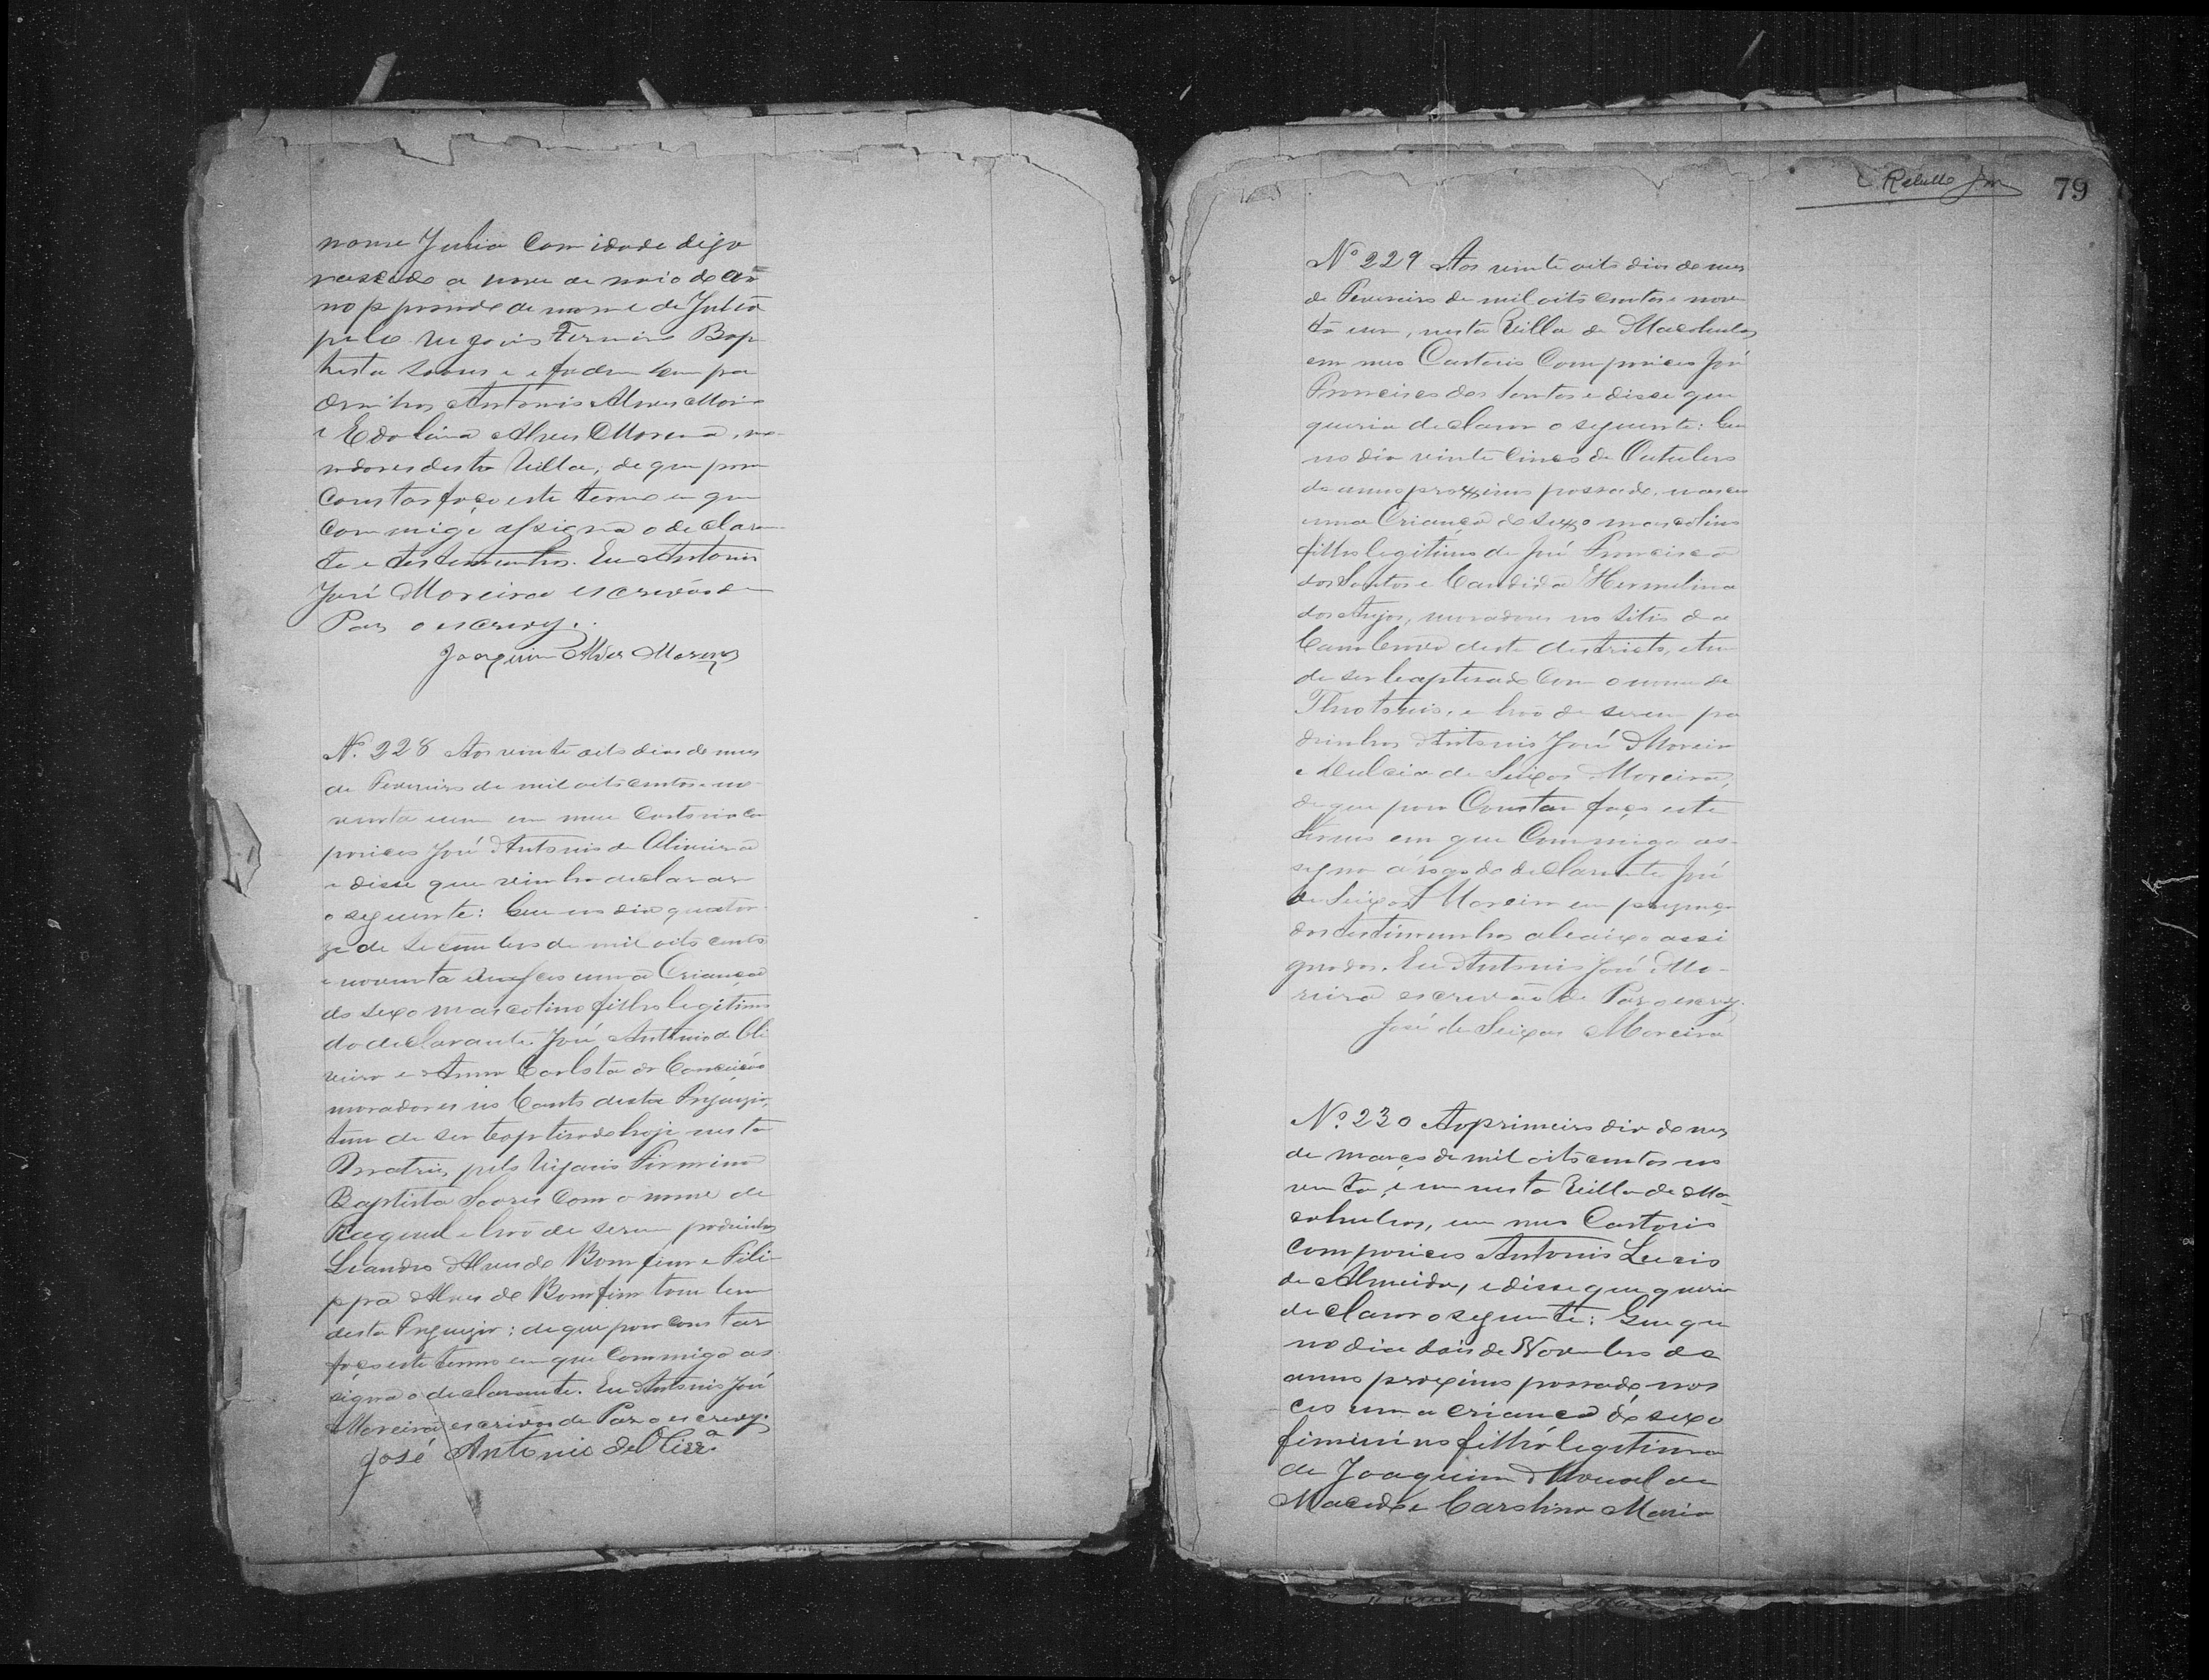 nome Julia com idade digo
nascido a nove de maio do an
no p passado de nome de Julia
pelo Vigario Firmino Bap
tista Soares e foram seus pa
drinhos Antonio Alves Morei
e Edolina Alves Moreira, mo-
radores desta Villa, de que para
constar faço este termo em que
commigo assigna o declaran-
te e testemunhas. Eu Antonio
José Moreira escrivão de
Paz o escrevy.
Joaquim Alves Moreira
Nº 228 Aos vinte oito dias do mes
de Fevereiro de mil oitocentos e no-
venta e um em meu Cartorio com
pareceo José Antonio de Oliveira
e disse que vinha declarar
o seguinte: Que no dia quator
ze de Setembro de mil oito centos
e noventa nasceo uma Criança
do sexo mascolino filho legitimo
do declarante José Antonio de Oli
veira e Anna Carlota da Conceição
moradores no Canto desta Freguezia,
tem de ser baptisado hoje nesta
Matriz pelo Vigario Firmino
Baptista Soares com o nome de
Raquel e hão de serem padrinhos
Leandro Alves do Bomfim e Fili-
ppa Alves do Bomfim tam bem
desta Freguezia: de que para constar
faço este termo em que commigo as-
signa o declarante. Eu Antonio José
Moreira escrivão de Paz o escrevy.
José Antonio de Olivrª
Rebello Jor
79
Nº 229 Aos vinte oito dias do mes
de Fevereiro de mil oito centos e noven
ta e um, nesta Villa de Macahubas
em meu Cartorio Compareceo José
Francisco dos Santos e disse que
queria declarar o seguinte: Que
no dia vinte cinco de Outubro
do anno proximo passado, nasceu
uma Criança do sexo mascolino
filho legitimo de José Francisco
dos Santos e Candida Hermelina
dos Anjos, moradores no sitio da
deste destricto, e tem
de ser baptisado com o nome de
Theotonio, e hão de serem pa
drinhos Antonio José Moreira
e Dulcia de Seixas Moreira,
de que para Constar faço este
termo em que Commigo as-
signa á rogo do declarante José
de Seixas Moreira em presença
das testimunhas abaixo assi
gnadas. Eu Antonio José Mo-
reira escrivão de Paz o escrevy.
José de Seixas Moreira
Nº 230 Ao primeiro dia do mes
de março de mil oitocentos no
venta e um nesta Villa de Ma-
cahubas, em meu Cartorio
compareceo Antonio Lucio
de Almeida, e disse que queria
declarar o seguinte: Que que
no dia dois de Novembro do
anno proximo passado, nas
ceo uma criança do sexo
feminino filha legitima
de Joaquim Manoel de
Macedo e Carolina Maria